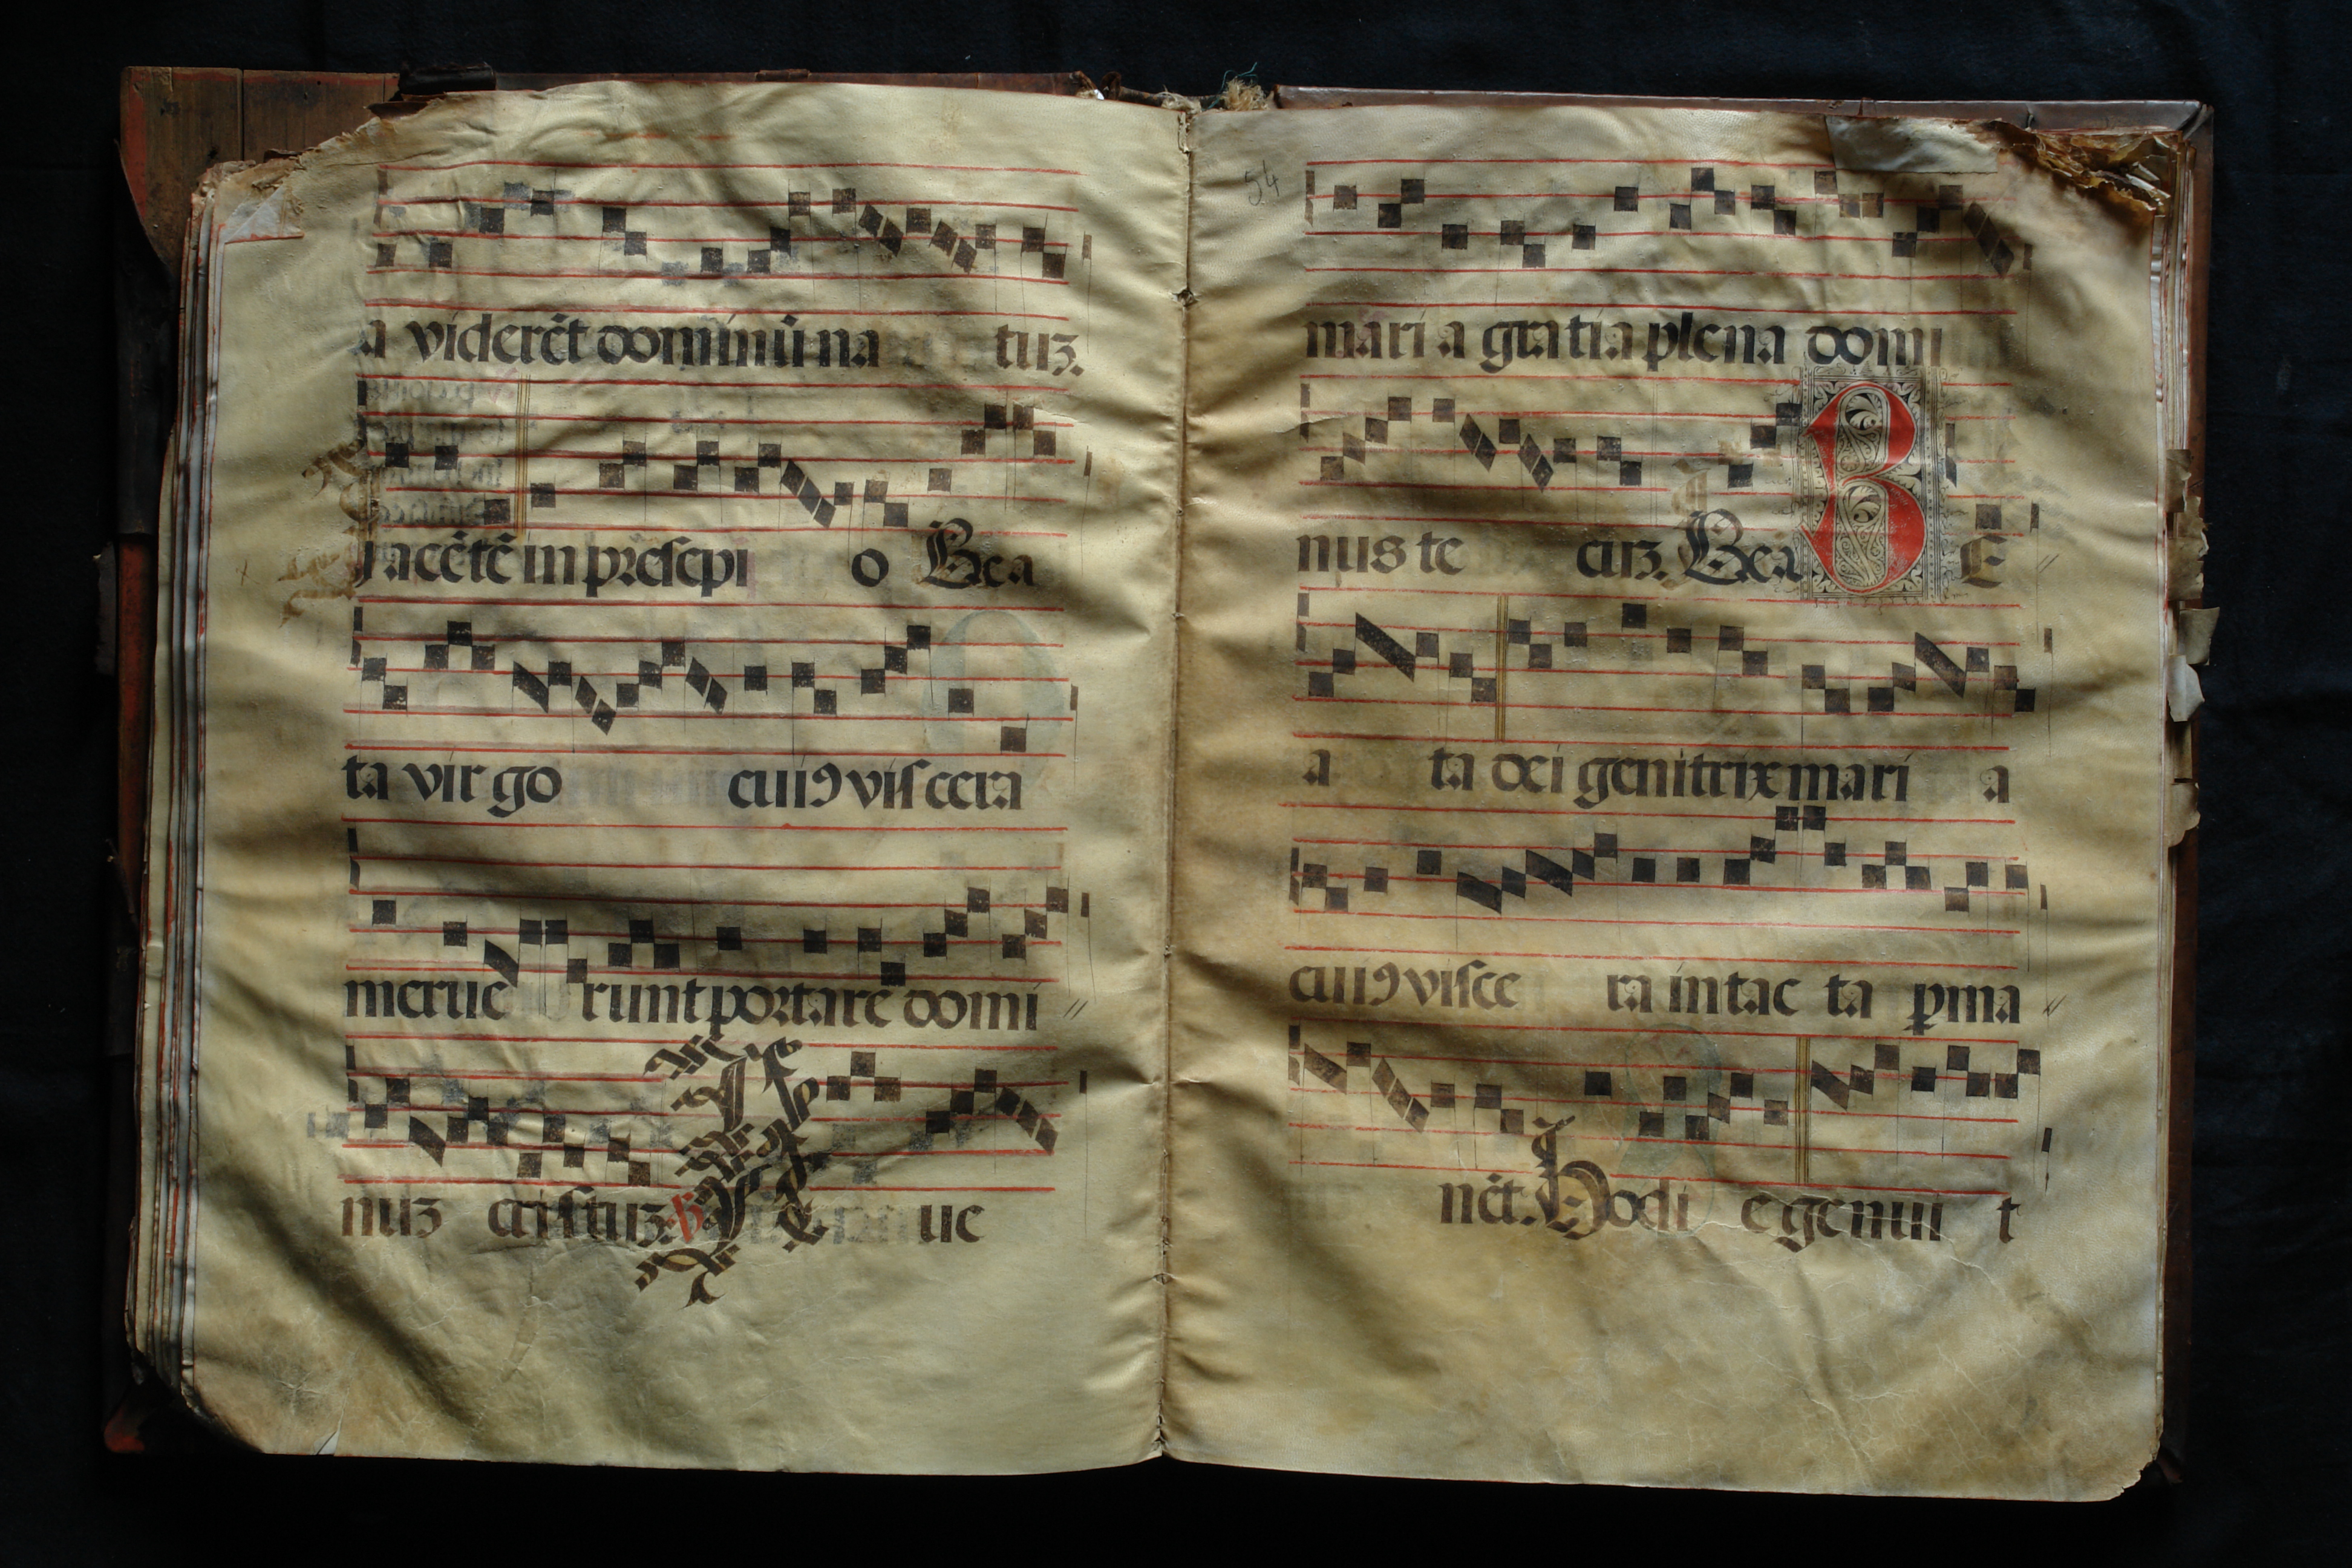 a viderēt dominū na tuꝫ.
jacētē in presepi o Bea
ta virgo cuiꝰ viscera
merue runt portare domi
nuꝫ cristuꝫ. ℣ ue
54
maria gratia plena domi
nus te cuꝫ. Bea B E
a ta dei genitrix mari a
cuiꝰ visce ra intac ta ꝑma
nēt. Hodi e genui t